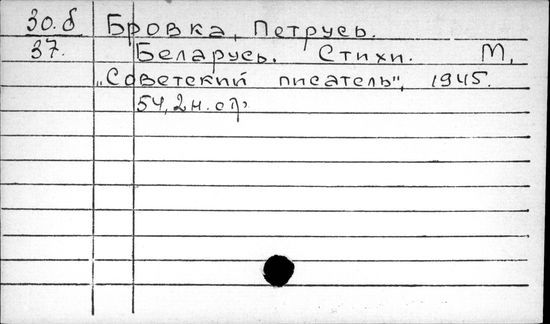 30.б Бровка, Петрусь.
37. Беларусь. Стихи. М,
„Советский писатель", 1945.
54,2н.стр